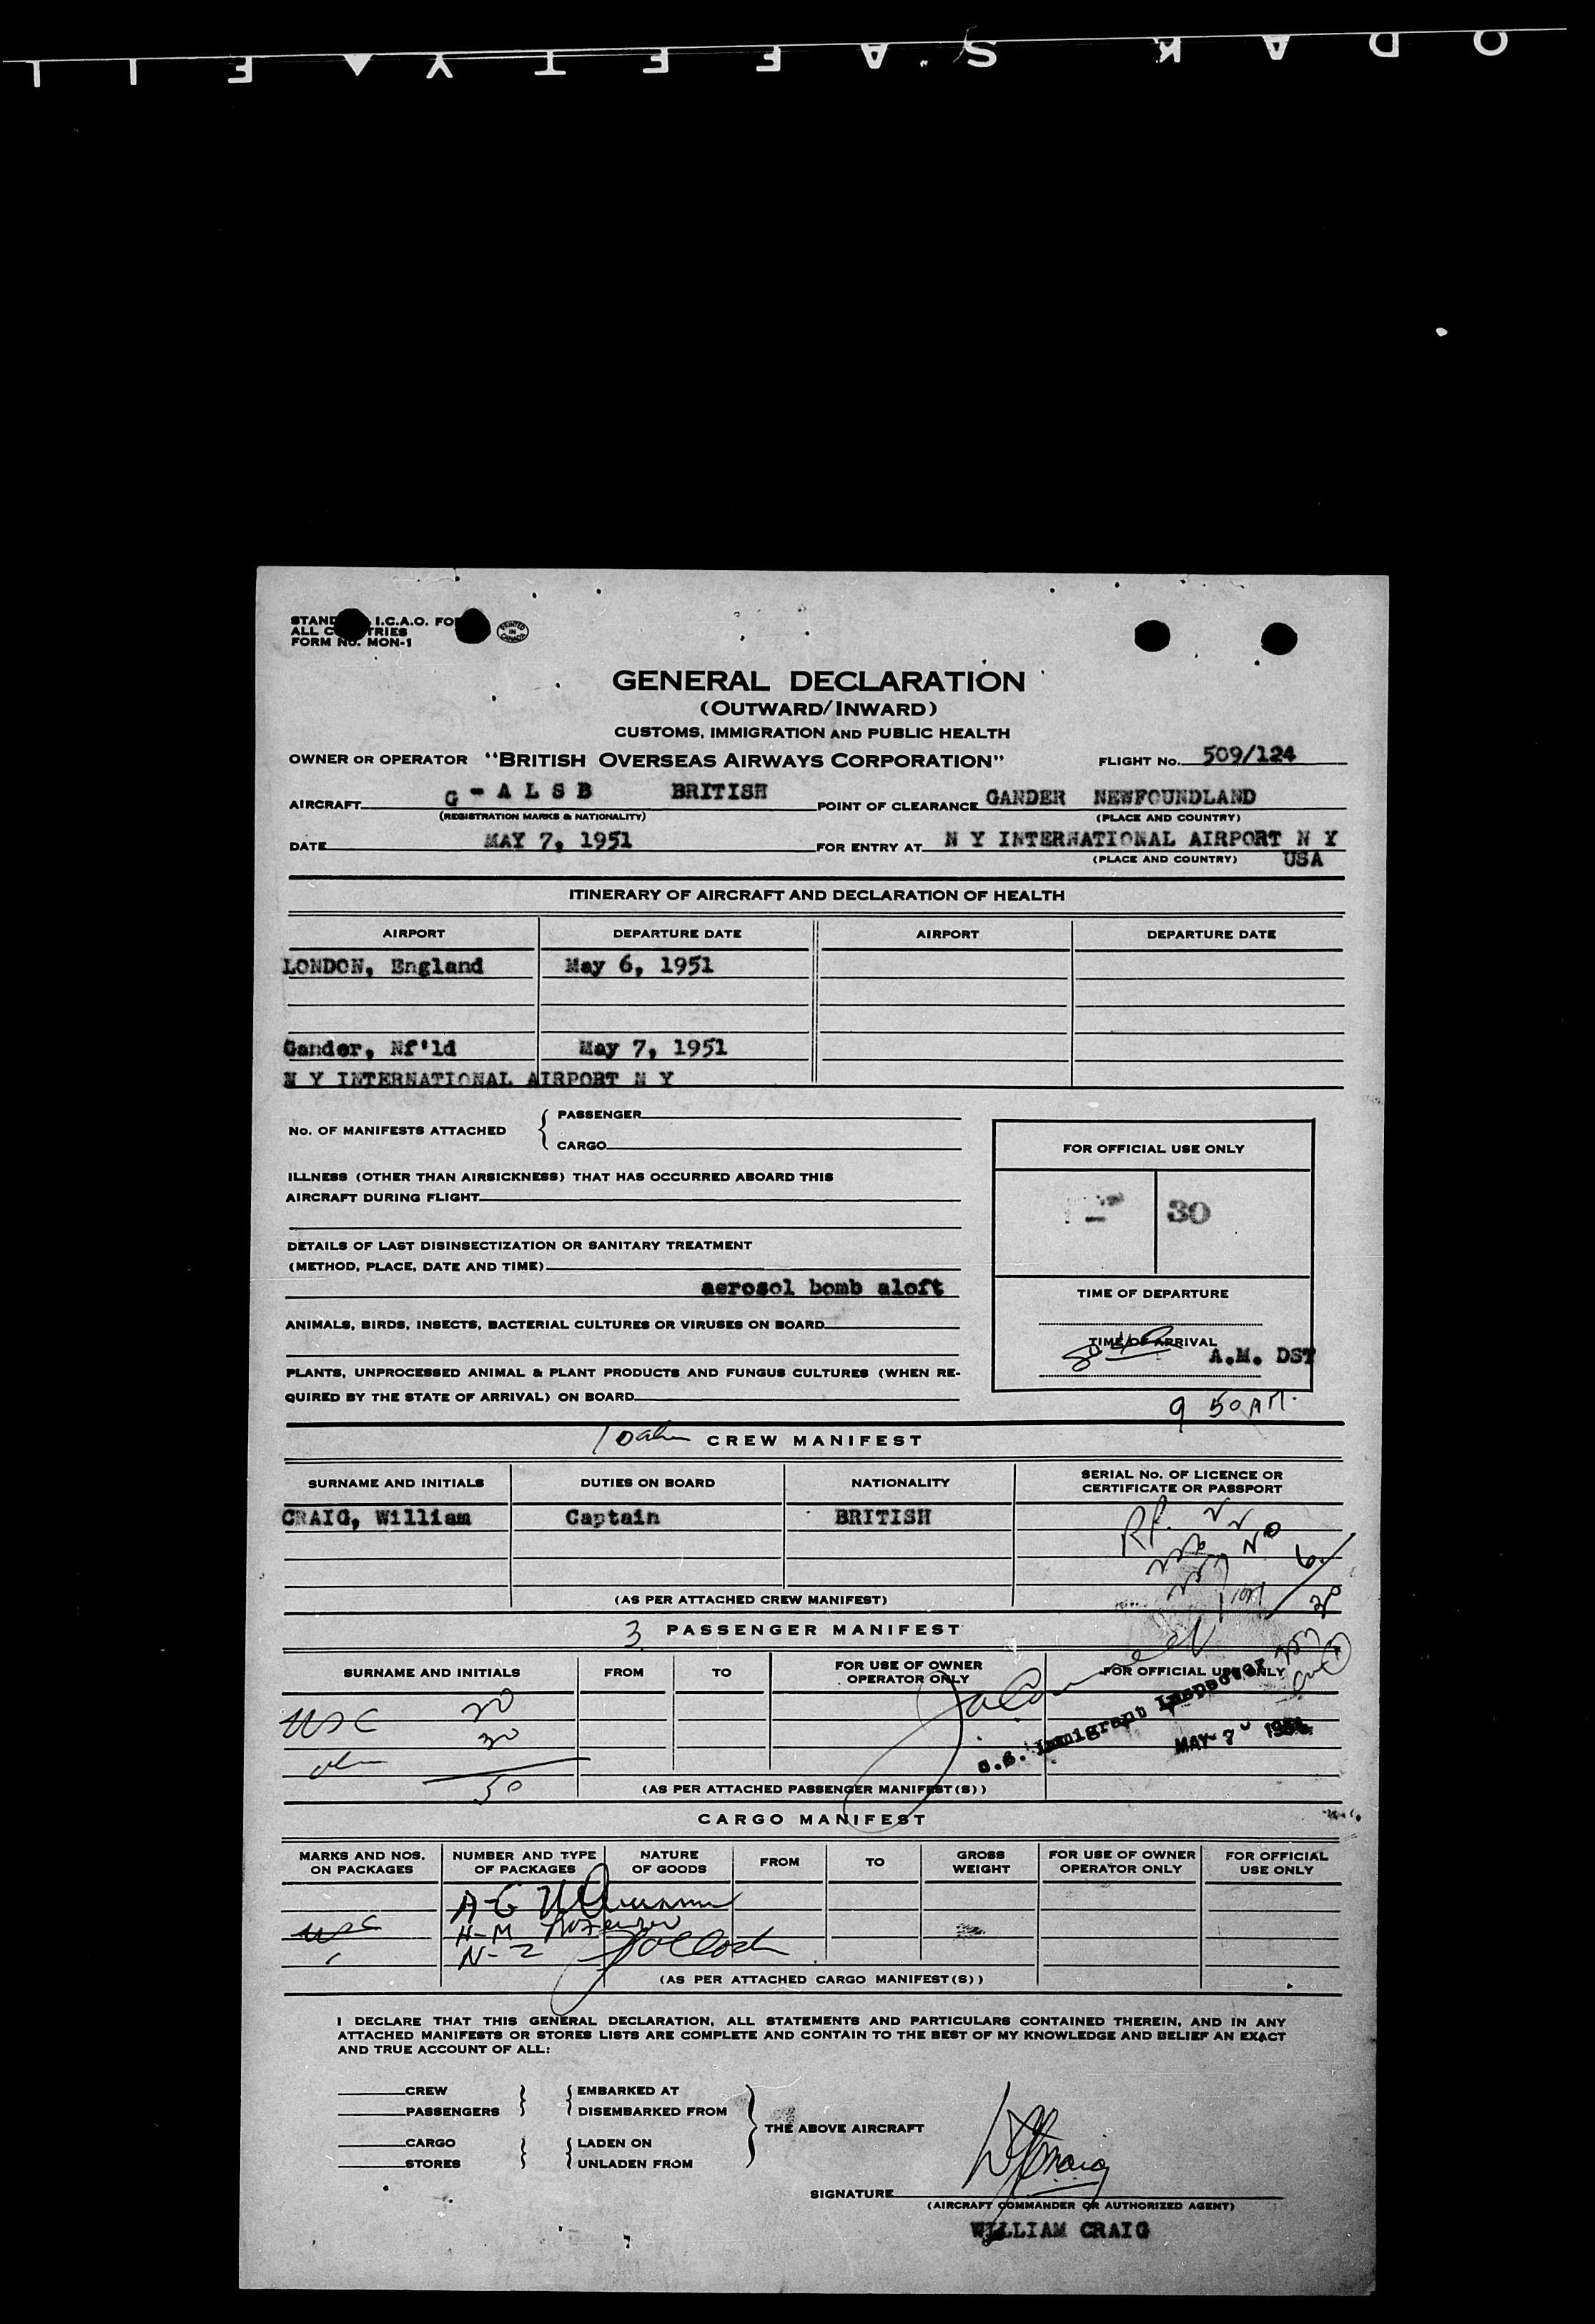 KODAK SAFETY FIL
STAND I.C.A.O. FO
ALL C TRIES
FORM No. MON-1
PRINTED IN CANADA
GENERAL DECLARATION
(OUTWARD/INWARD)
CUSTOMS, IMMIGRATION AND PUBLIC HEALTH
OWNER OR OPERATOR "BRITISH OVERSEAS AIRWAYS CORPORATION" FLIGHT No. 509/124
AIRCRAFT G - A L S B BRITISH POINT OF CLEARANCE GANDER NEWFOUNDLAND
(REGISTRATION MARKS & NATIONALITY) (PLACE AND COUNTRY)
DATE MAY 7, 1951 FOR ENTRY AT N Y INTERNATIONAL AIRPORT N Y
(PLACE AND COUNTRY) USA
ITINERARY OF AIRCRAFT AND DECLARATION OF HEALTH
AIRPORT DEPARTURE DATE AIRPORT DEPARTURE DATE
LONDON, England May 6, 1951
Gander, Nf'ld May 7, 1951
N Y INTERNATIONAL AIRPORT N Y
No. OF MANIFESTS ATTACHED { PASSENGER
CARGO
ILLNESS (OTHER THAN AIRSICKNESS) THAT HAS OCCURRED ABOARD THIS
AIRCRAFT DURING FLIGHT
DETAILS OF LAST DISINSECTIZATION OR SANITARY TREATMENT
(METHOD, PLACE, DATE AND TIME)
aerosol bomb aloft
ANIMALS, BIRDS, INSECTS, BACTERIAL CULTURES OR VIRUSES ON BOARD
PLANTS, UNPROCESSED ANIMAL & PLANT PRODUCTS AND FUNGUS CULTURES (WHEN RE-
QUIRED BY THE STATE OF ARRIVAL) ON BOARD
FOR OFFICIAL USE ONLY
30
TIME OF DEPARTURE
TIME OF ARRIVAL
A.M. DST
9 50 AM.
CREW MANIFEST
SURNAME AND INITIALS DUTIES ON BOARD NATIONALITY SERIAL No. OF LICENCE OR
CERTIFICATE OR PASSPORT
CRAIG, William Captain BRITISH
(AS PER ATTACHED CREW MANIFEST)
3 PASSENGER MANIFEST
SURNAME AND INITIALS FROM TO FOR USE OF OWNER
OPERATOR ONLY FOR OFFICIAL USE ONLY
USC 20
30
50
U.S. Immigrant Inspector
MAY 7 1951
(AS PER ATTACHED PASSENGER MANIFEST(S))
CARGO MANIFEST
MARKS AND NOS.
ON PACKAGES NUMBER AND TYPE
OF PACKAGES NATURE
OF GOODS FROM TO GROSS
WEIGHT FOR USE OF OWNER
OPERATOR ONLY FOR OFFICIAL
USE ONLY
A-G
USC H-M
N-Z
(AS PER ATTACHED CARGO MANIFEST(S))
I DECLARE THAT THIS GENERAL DECLARATION, ALL STATEMENTS AND PARTICULARS CONTAINED THEREIN, AND IN ANY
ATTACHED MANIFESTS OR STORES LISTS ARE COMPLETE AND CONTAIN TO THE BEST OF MY KNOWLEDGE AND BELIEF AN EXACT
AND TRUE ACCOUNT OF ALL:
CREW EMBARKED AT
PASSENGERS DISEMBARKED FROM
THE ABOVE AIRCRAFT
CARGO LADEN ON
STORES UNLADEN FROM
SIGNATURE W Craig
(AIRCRAFT COMMANDER OR AUTHORIZED AGENT)
WILLIAM CRAIG